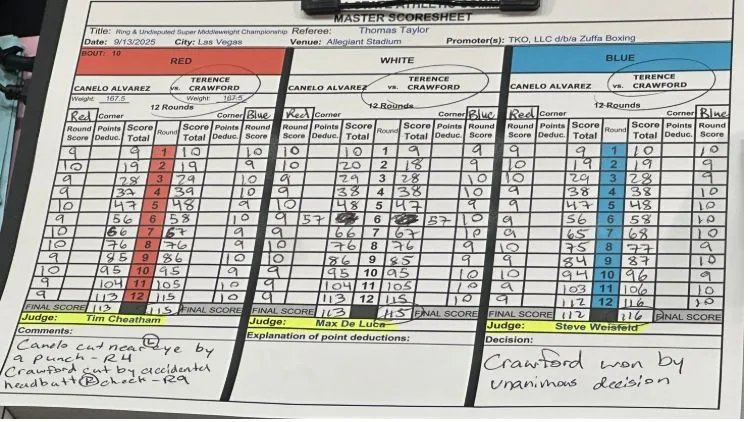 MASTER SCORESHEET
Title: Ring & Undisputed Super Middleweight Championship Referee: Thomas Taylor
Date: 9/13/2025 City: Las Vegas Venue: Allegiant Stadium Promoter(s): TKO, LLC d/b/a Zuffa Boxing
BOUT: 10
RED
CANELO ALVAREZ vs. TERENCE CRAWFORD
Weight: 167.5 Weight: 167.5
12 Rounds
Red Corner Corner Blue
Round Score Points Deduc. Score Total Round Score Total Points Deduc. Round Score
9 9 1 10 10
10 19 2 19 9
9 28 3 29 10
9 37 4 39 10
10 47 5 48 9
9 56 6 58 10
10 66 7 67 9
10 76 8 76 9
9 85 9 86 10
10 95 10 95 9
9 104 11 105 10
9 113 12 115 10
FINAL SCORE 113 115 FINAL SCORE
Judge: Tim Cheatham
Comments:
Canelo cut near (L) eye by
a punch - R4
Crawford cut by accidental
headbutt (R) cheek - R9
WHITE
CANELO ALVAREZ vs. TERENCE CRAWFORD
12 Rounds
Red Corner Corner Blue
Round Score Points Deduc. Score Total Round Score Total Points Deduc. Round Score
10 10 1 9 9
10 20 2 18 9
9 29 3 28 10
9 38 4 38 10
10 48 5 47 9
9 57 6 57 10
9 66 7 67 10
10 76 8 76 9
10 86 9 85 9
9 95 10 95 10
9 104 11 105 10
9 113 12 115 10
FINAL SCORE 113 115 FINAL SCORE
Judge: Max De Luca
Explanation of point deductions:
BLUE
CANELO ALVAREZ vs. TERENCE CRAWFORD
12 Rounds
Red Corner Corner Blue
Round Score Points Deduc. Score Total Round Score Total Points Deduc. Round Score
9 9 1 10 10
10 19 2 19 9
10 29 3 28 9
9 38 4 38 10
9 47 5 48 10
9 56 6 58 10
9 65 7 68 10
10 75 8 77 9
9 84 9 87 10
10 94 10 96 9
9 103 11 106 10
9 112 12 116 10
FINAL SCORE 112 116 FINAL SCORE
Judge: Steve Weisfeld
Decision:
Crawford won by
unanimous decision